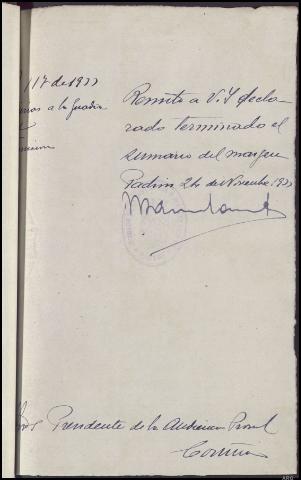 117 de 1933
a la Guardia
Remito a V.I decla-
rado terminado el
sumario del margen
Padrón 24 de Novembre 1933
Presidente de la Audiencia Provl
Coruña